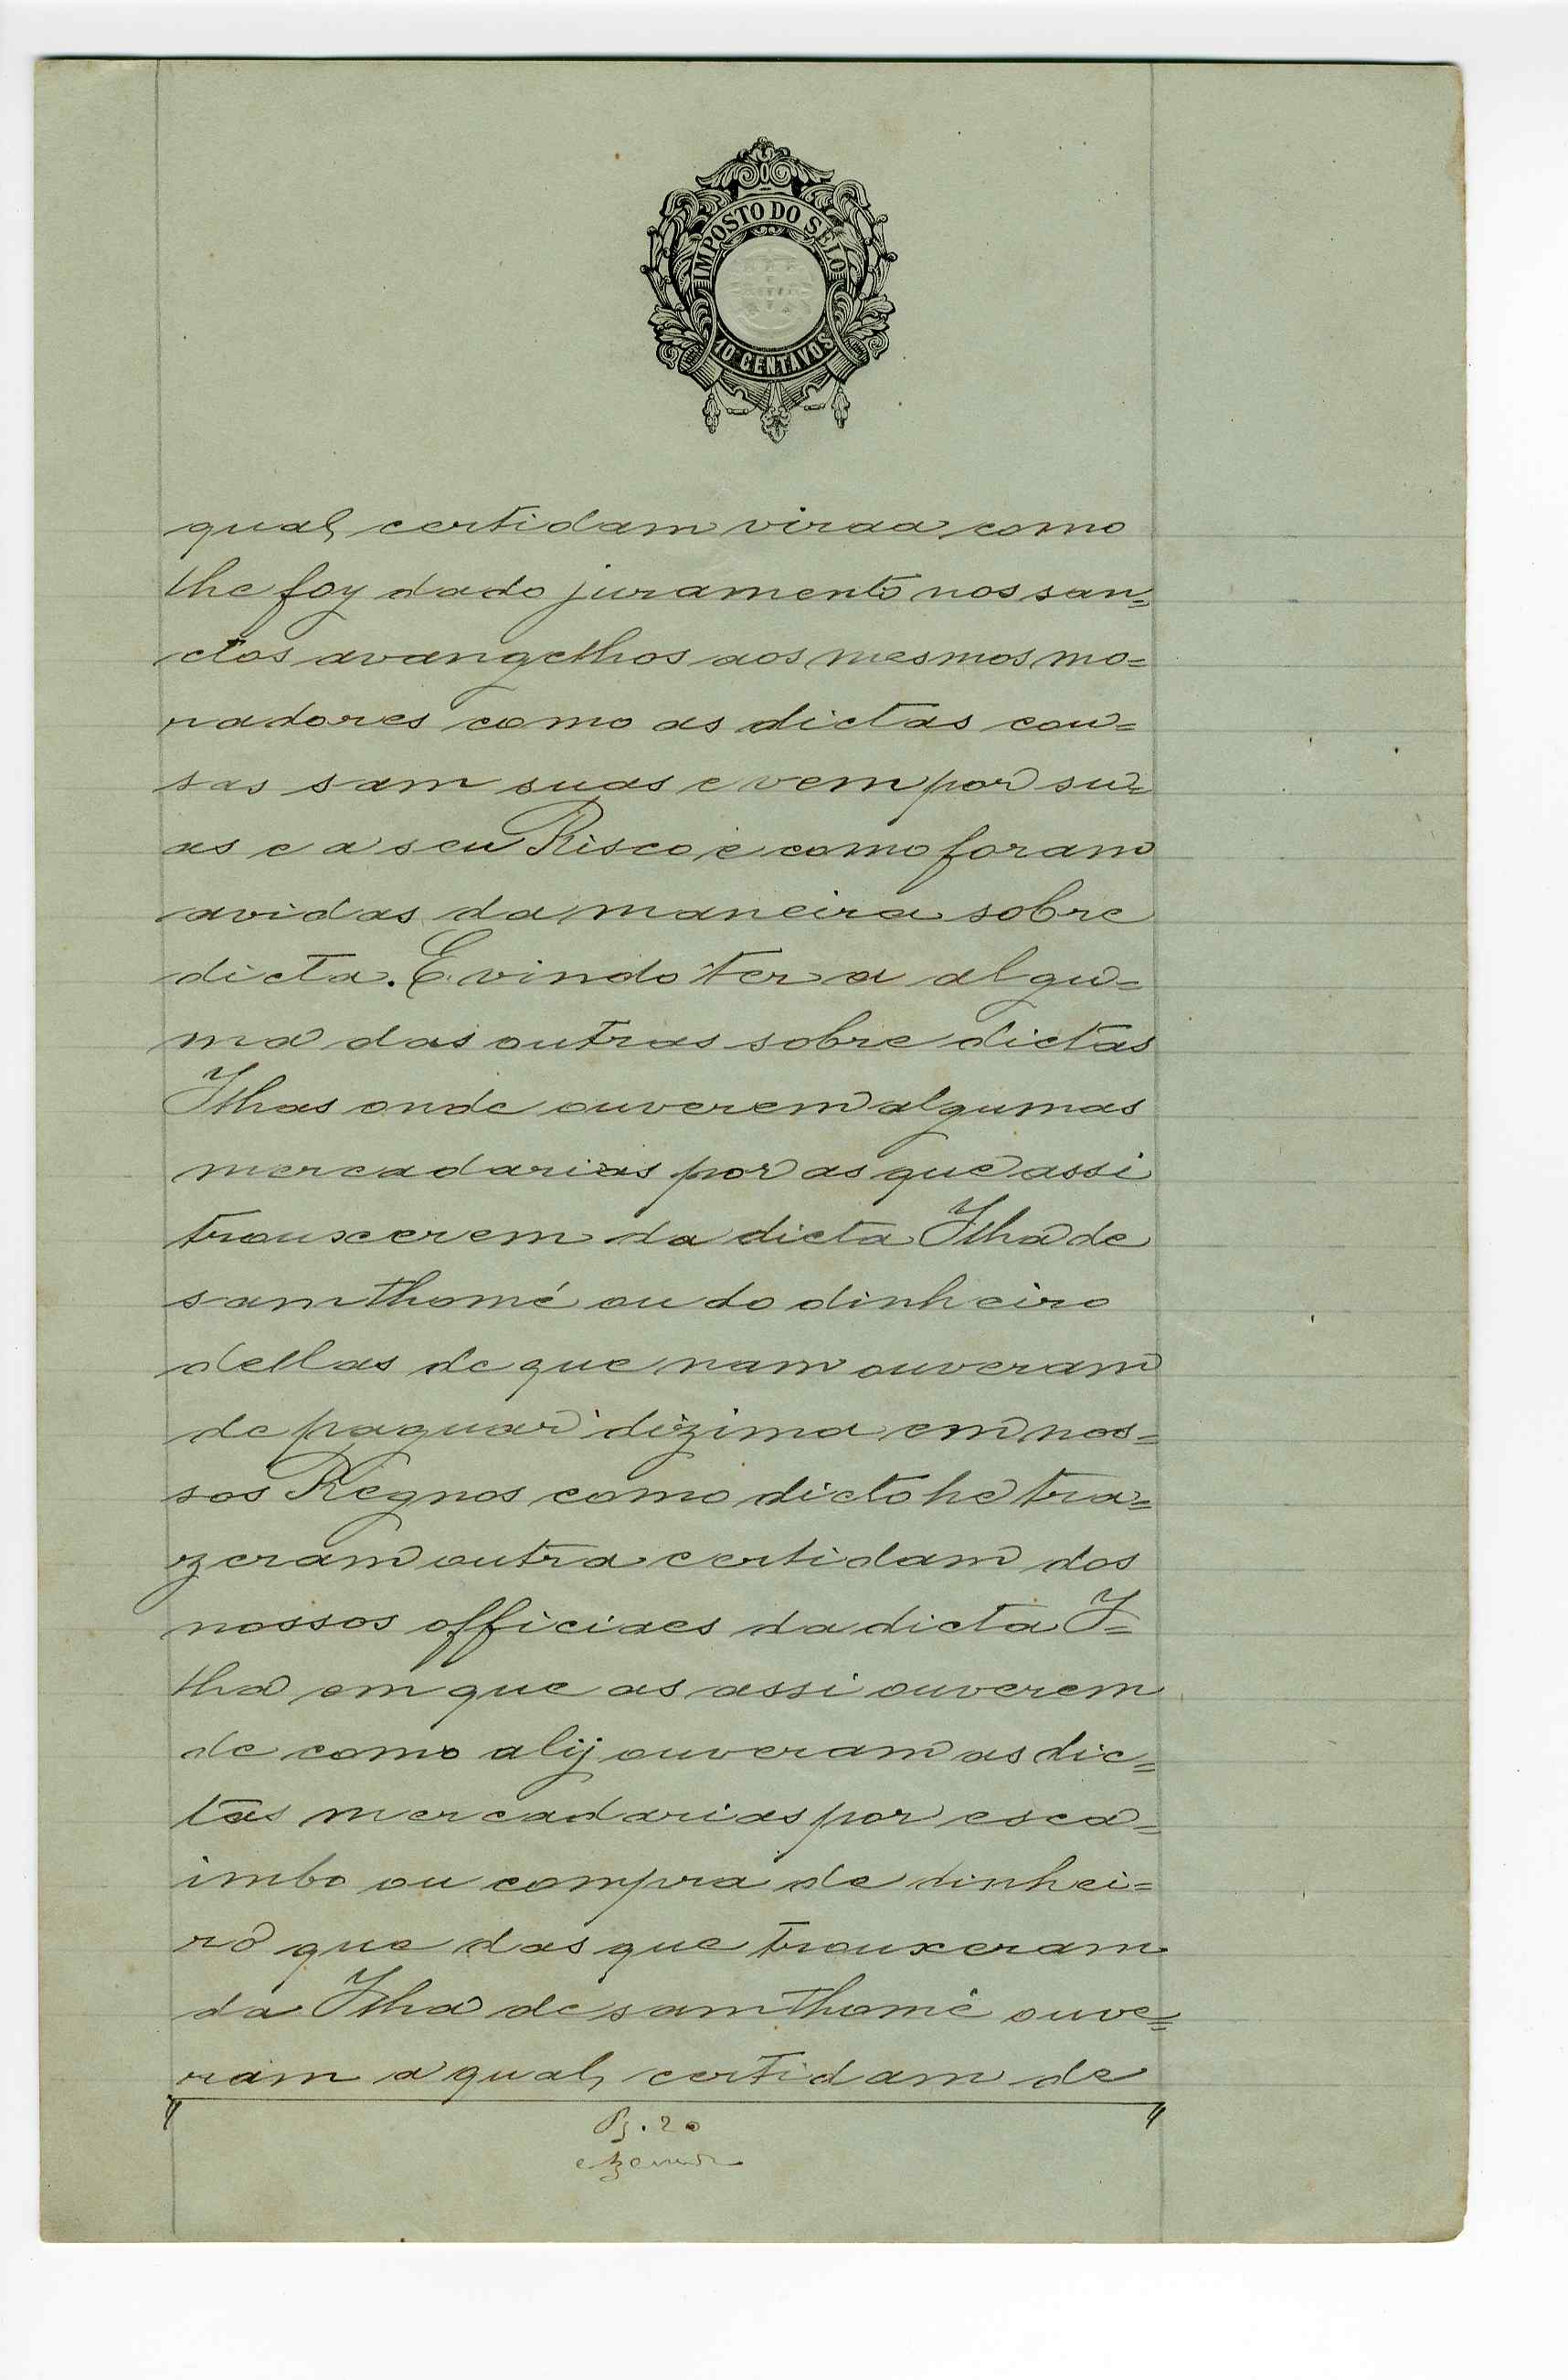 IMPOSTO DO SELO
10 CENTAVOS
qual, certidam viraa como
lhe foy dado juramento nos san=
ctos avangelhos aos mesmos mo=
radores como as dictas cou=
sas sam suas e vem por su=
as e a seu Risco e como foram
avidas da maneira sobre
dicta. E vindo ter a algu=
ma das outras sobre dictas
Ilhas onde ouverem algumas
mercadarias por as que assi
trouxerem da dicta Ilha de
sam thomé ou do dinheiro
dellas de que nam ouveram
de paguar dizima em nos=
sos Regnos como dicto he tra=
zeram outra certidam dos
nossos officiaes da dicta I=
lha em que as assi ouverem
de como alij ouveram as dic=
tas mercadarias por esca=
imbo ou compra de dinhei=
ro que das que trouxeram
da Ilha de sam thomé ouve=
ram a qual, certidam de
Pg. 20